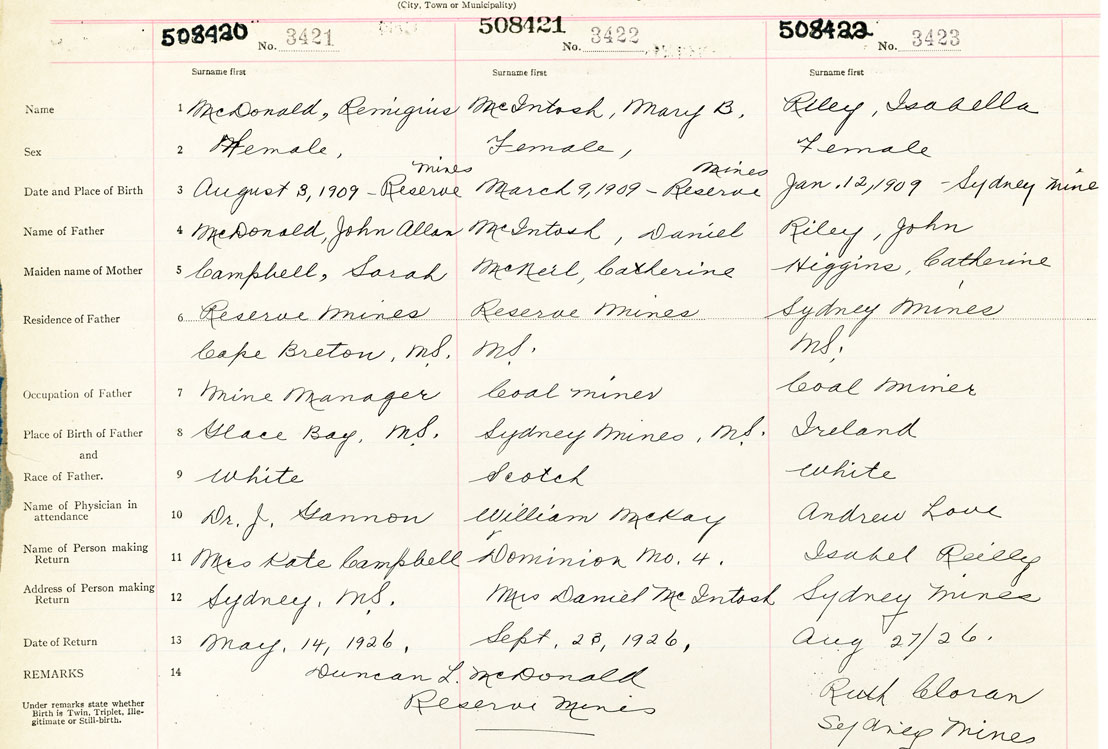 (City, Town or Municipality)
508420 No. 3421 508421 No. 3422 508422 No. 3423
Surname first Surname first Surname first
Name 1 McDonald, Remigius McIntosh, Mary B. Riley, Isabella
Sex 2 Female, Female, Female
Mines Mines
Date and Place of Birth 3 August 3, 1909 - Reserve March 9, 1909 - Reserve Jan. 12, 1909 - Sydney Mine
Name of Father 4 McDonald, John Allan McIntosh, Daniel Riley, John
Maiden name of Mother 5 Campbell, Sarah McNeil, Catherine Higgins, Catherine
Residence of Father 6 Reserve Mines Reserve Mines Sydney Mines
Cape Breton, N.S. N.S. N.S.
Occupation of Father 7 Mine Manager Coal miner Coal Miner
Place of Birth of Father 8 Glace Bay, N.S. Sydney Mines, N.S. Ireland
and
Race of Father. 9 White Scotch White
Name of Physician in attendance 10 Dr. J. Gannon William McKay Andrew Love
Name of Person making Return 11 Mrs Kate Campbell Dominion No. 4. Isabel Reilly
Address of Person making Return 12 Sydney, N.S. Mrs Daniel McIntosh Sydney Mines
Date of Return 13 May, 14, 1926, Sept. 23, 1926, Aug 27/26.
REMARKS 14 Duncan L. McDonald Ruth Cloran
Under remarks state whether Reserve Mines Sydney Mines
Birth is Twin, Triplet, Ille-
gitimate or Still-birth.